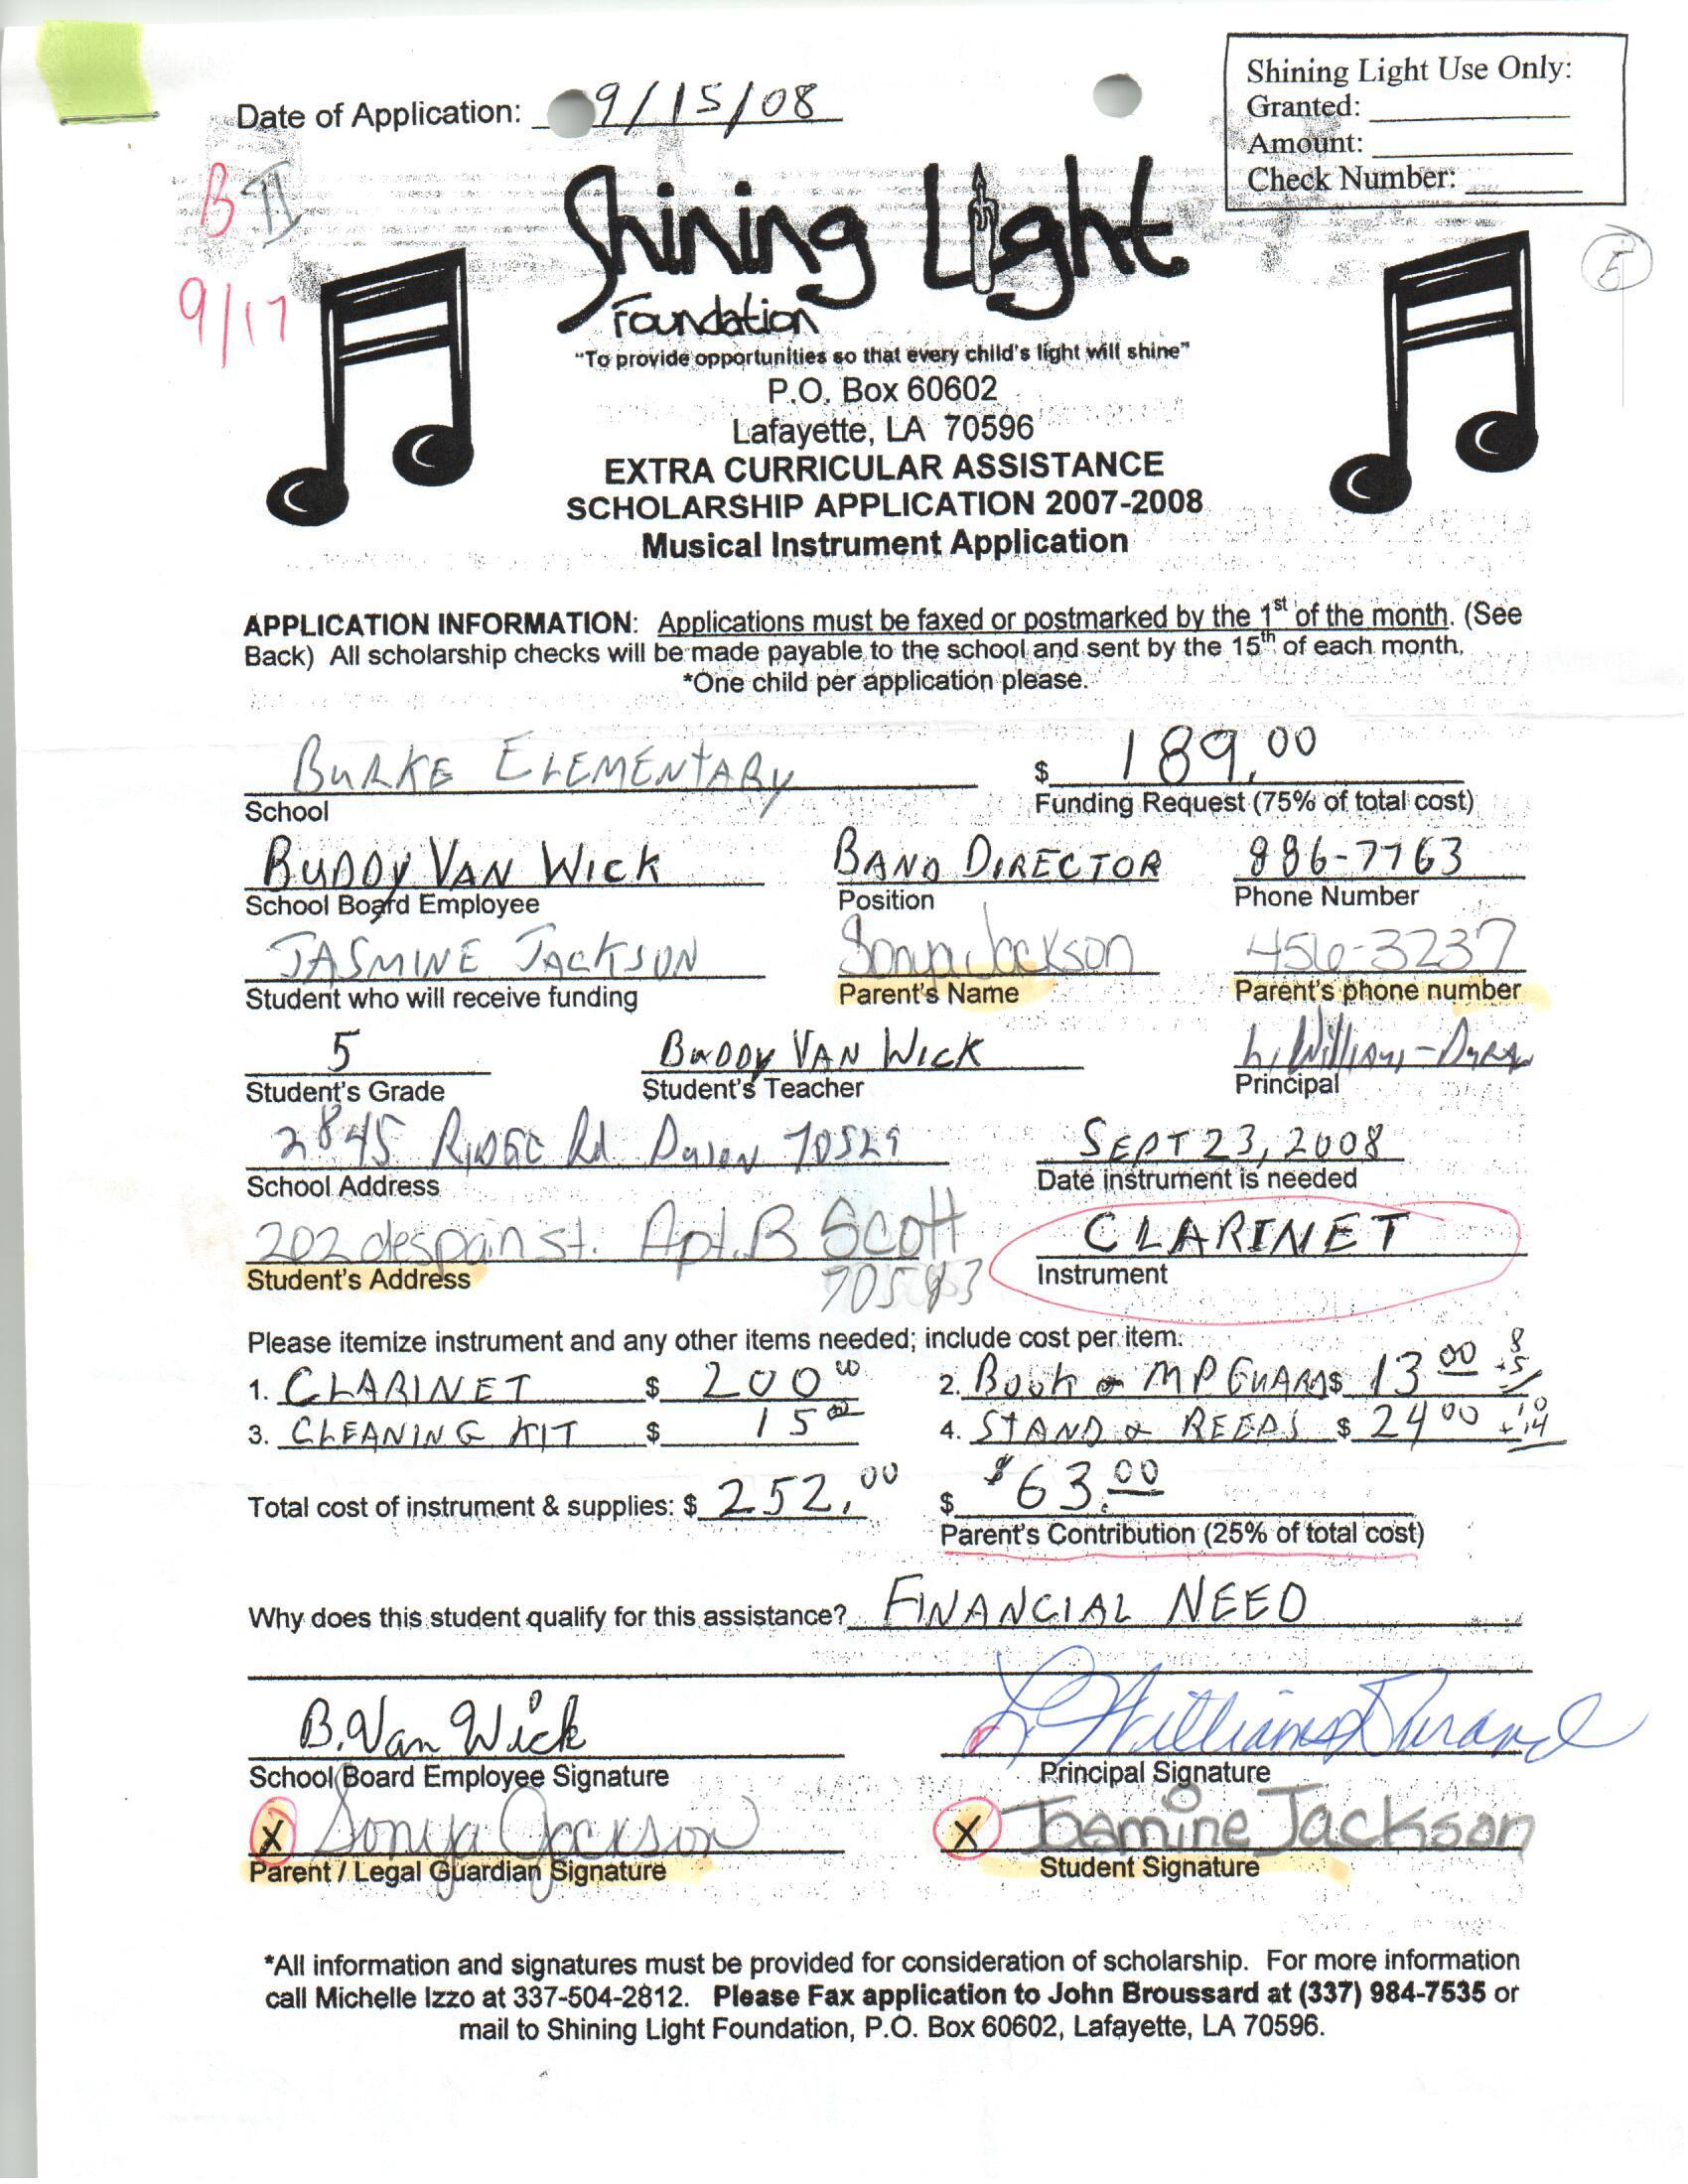 Shining Light Use Only:
Granted:
Amount:
Check Number:
Date of Application: 9/15/08
B II
9/17
E
Shining Light
Foundation
“To provide opportunities so that every child's light will shine”
P.O. Box 60602
Lafayette, LA 70596
EXTRA CURRICULAR ASSISTANCE
SCHOLARSHIP APPLICATION 2007-2008
Musical Instrument Application
APPLICATION INFORMATION: Applications must be faxed or postmarked by the 1st of the month. (See
Back) All scholarship checks will be made payable to the school and sent by the 15th of each month.
*One child per application please.
BURKE ELEMENTARY $ 189.00
School Funding Request (75% of total cost)
BUDDY VAN WICK BAND DIRECTOR 886-7763
School Board Employee Position Phone Number
JASMINE JACKSON Sonya Jackson 456-3237
Student who will receive funding Parent's Name Parent's phone number
5 BUDDY VAN WICK L. Williams-
Student's Grade Student's Teacher Principal
2845 RIDGE Rd 70529 SEPT 23, 2008
School Address Date instrument is needed
202 despain st. Apt. B Scott CLARINET
70583
Student's Address Instrument
Please itemize instrument and any other items needed; include cost per item.
1. CLARINET $ 200 00 2. Book & MP GUARD $ 13 00 8 +5
3. CLEANING KIT $ 15 00 4. STAND & REEDS $ 24 00 10 +14
Total cost of instrument & supplies: $ 252.00 $ $63.00
Parent's Contribution (25% of total cost)
Why does this student qualify for this assistance? FINANCIAL NEED
B. Van Wick L Williams Durand
School Board Employee Signature Principal Signature
X Sonya Jackson X Jasmine Jackson
Parent / Legal Guardian Signature Student Signature
*All information and signatures must be provided for consideration of scholarship. For more information
call Michelle Izzo at 337-504-2812. Please Fax application to John Broussard at (337) 984-7535 or
mail to Shining Light Foundation, P.O. Box 60602, Lafayette, LA 70596.